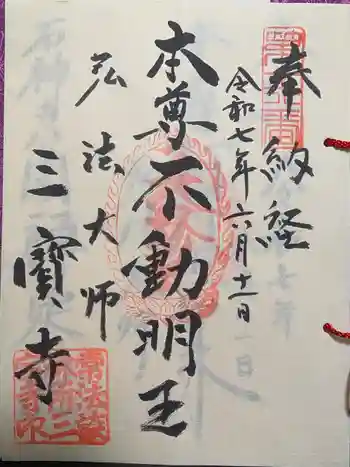 奉納経
令和七年六月十一日
本尊不動明王
弘法大師
三寳寺